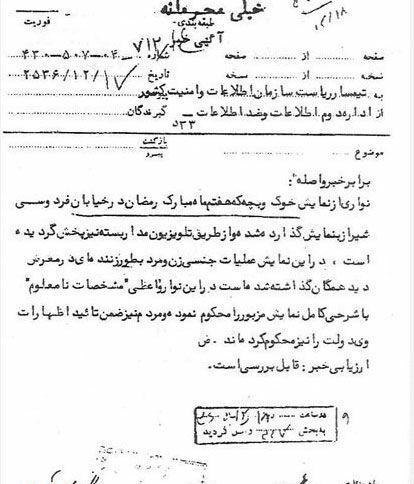 خیلی محرمانه
طبقه‌بندی-
فوریت
آگهی خبر
صفحه از صفحه شماره ۷۱۲ ۴۳۰-۵۰۷-۰۴
نسخه از نسخه تاریخ ۲۵۳۶/۱۲/۱۷
به تیمسار ریاست سازمان اطلاعات و امنیت کشور
از اداره دوم اطلاعات و ضد اطلاعات گیرندگان
موضوع بازگشت
پیرو
برابر خبر واصله:
نواری از نمایش خوک و بچه که هفتم ماه مبارک رمضان در خیابان فردوسی
شیراز بنمایش گذارده شده و از طریق تلویزیون مدار بسته نیز پخش گردیده
است، در این نمایش عملیات جنسی زن و مرد بطور زننده‌ای در معرض
دید همگان گذاشته شده است در این نوار واعظی "مشخصات نامعلوم"
با شرحی کامل نمایش مزبور را محکوم نموده و مردم نیز ضمن تائید اظهارات
وی دولت را نیز محکوم کرده‌اند. ض
ارزیابی خبر: قابل بررسی است.
گردید